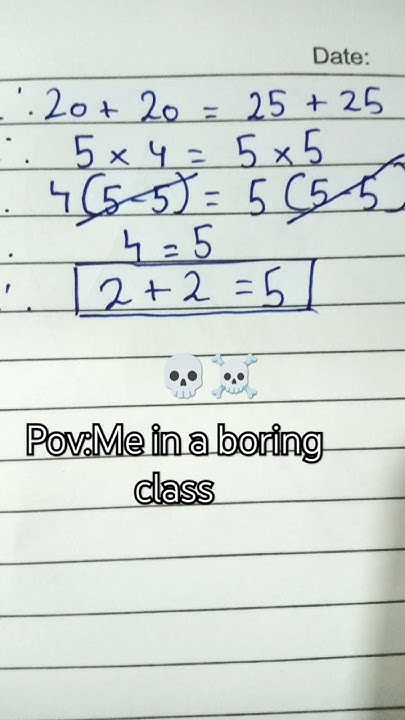 Date:
∵ 20 + 20 = 25 + 25
∴ 5 × 4 = 5 × 5
∴ 4 (5-5) = 5 (5-5)
∴ 4 = 5
∴ 2 + 2 = 5
💀☠️
Pov:Me in a boring
class